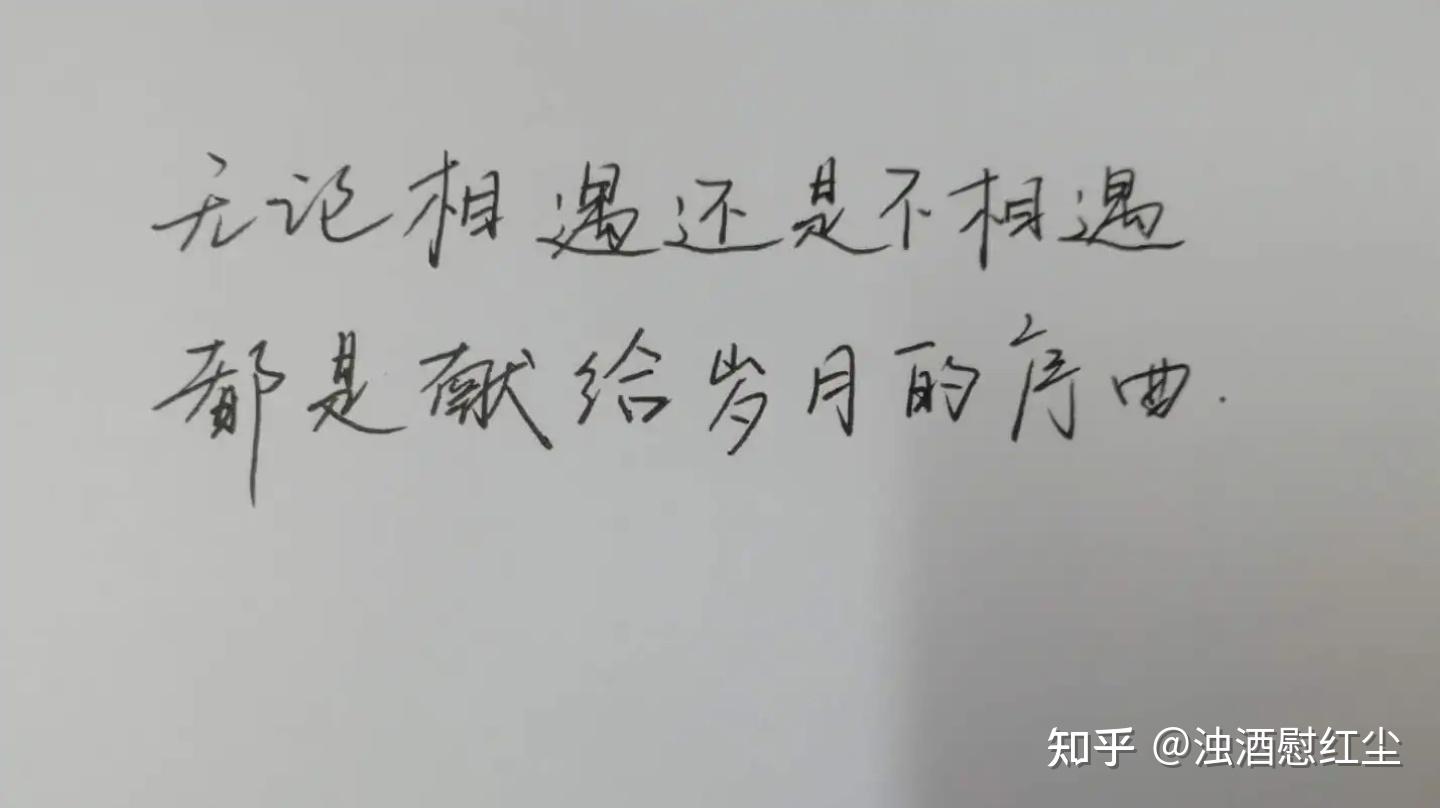 无论相遇还是不相遇
都是献给岁月的序曲.
知乎 @浊酒慰红尘